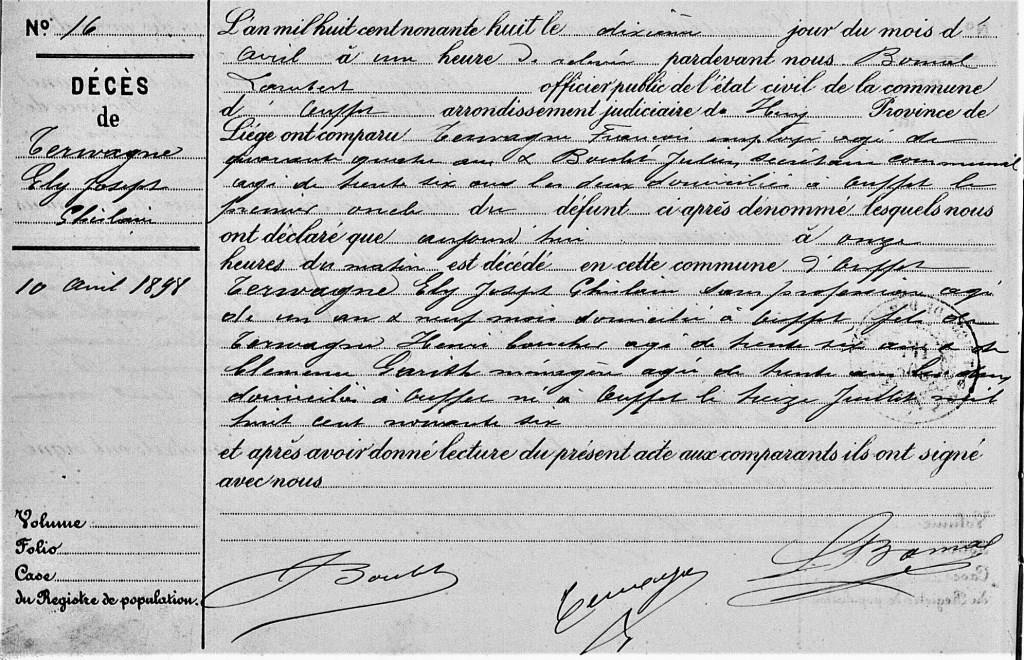 Nº 16
DÉCÈS
de
Terwagne
Ely Joseph
Ghilain
10 avril 1898
Volume
Folio
Case
du Registre de population.
L'an mil huit cent nonante huit le dixième jour du mois d'
avril à une heure de relevée pardevant nous Bomal
Lambert officier public de l'état civil de la commune
d'Ouffet arrondissement judiciaire de Huy Province de
Liége ont comparu Terwagne François employé agé de
quarante quatre ans & Boulet Jules, secrétaire communal
agé de trente six ans les deux domiciliés à Ouffet le
premier oncle du défunt ci-après dénommé lesquels nous
ont déclaré que aujourd'hui à onze
heures du matin est décédé en cette commune d'Ouffet
Terwagne Ely Joseph Ghilain sans profession agé
de un an & neuf mois domicilié à Ouffet, fils de
Terwagne Henri agé de trente six ans & de
Clemence ménagère agée de trente ans les deux
domiciliés à Ouffet né à Ouffet le Juillet mil
huit cent nonante six
et après avoir donné lecture du présent acte aux comparants ils ont signé
avec nous
Boulet
Terwagne
L. Bomal